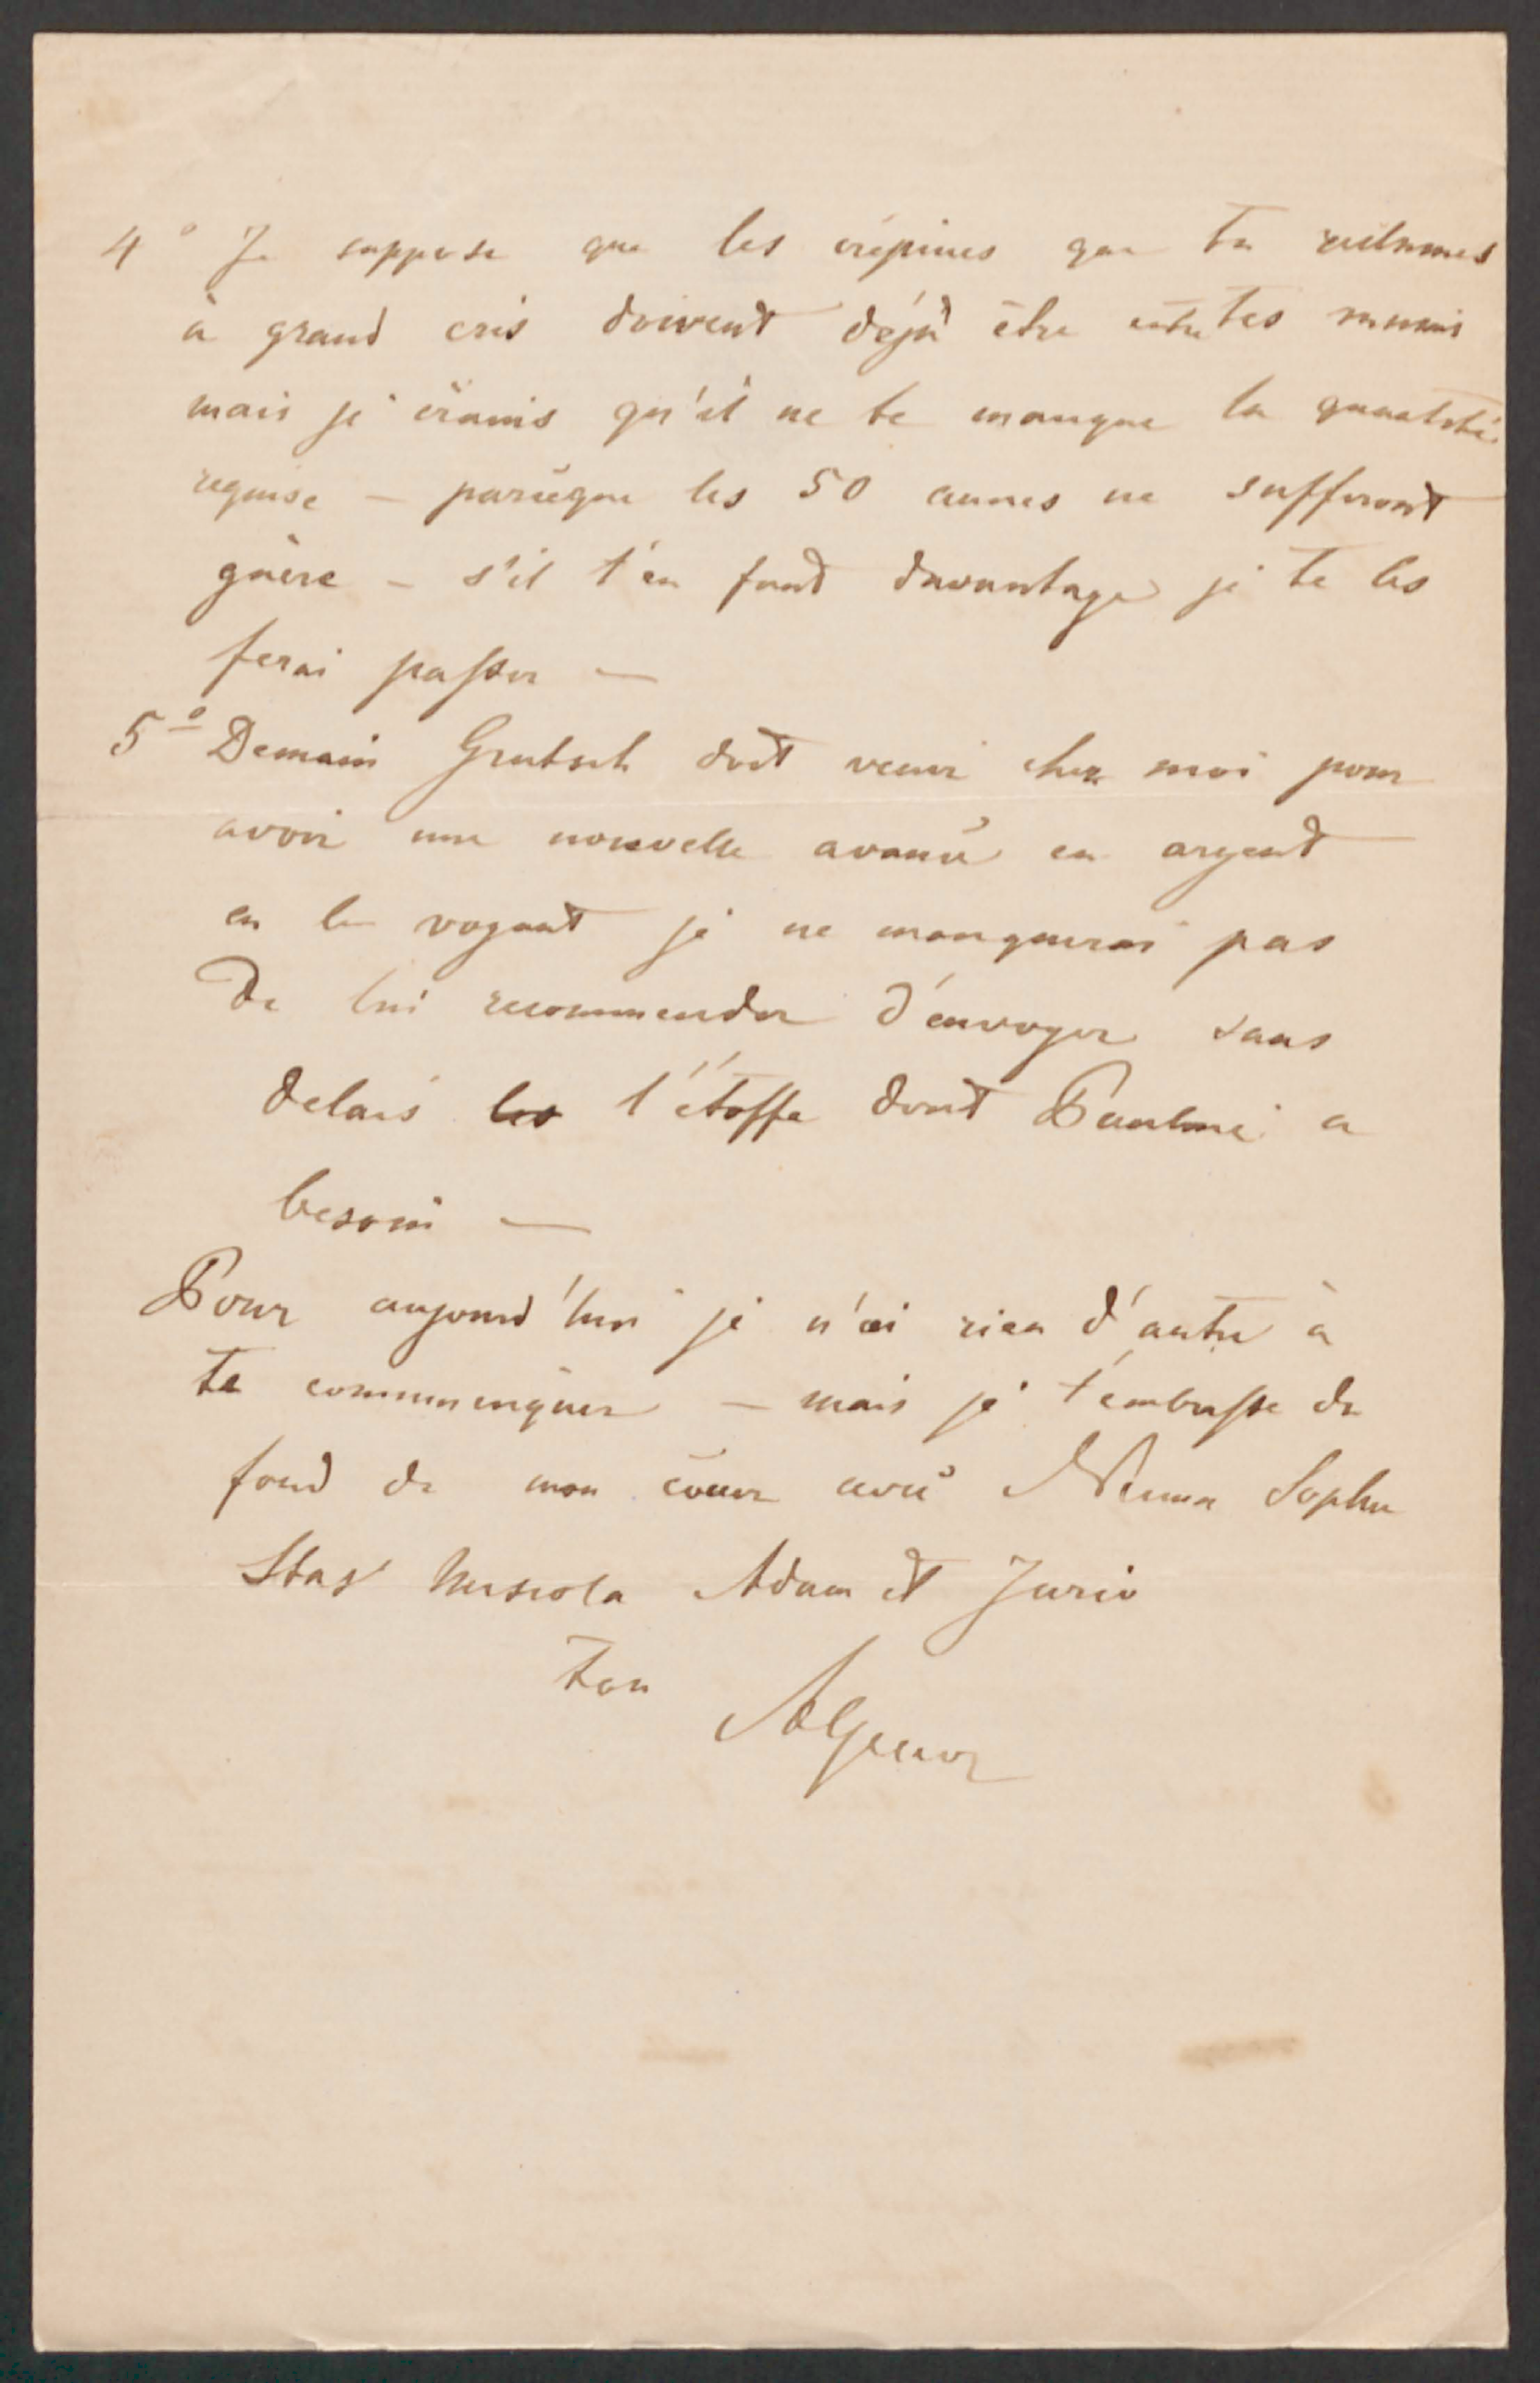 4° Je suppose que les crépines que tu réclames
à grand cris doivent déjà être entre tes mains
mais je crains qu'il ne te manque la quantité
requise — parceque les 50 aunes ne sufferont
guère — s'il t'en faut davantage je te les
ferai passer —
5° Demain doit venir chez moi pour
avoir une nouvelle avance en argent
en le voyant je ne manquerai pas
de lui recommender d'envoyer sans
delais les l'étoffe dont Pauline a
besoin —
Pour aujourd'hui je n'ai rien d'autre à
te communiquer — mais je t'embrasse du
fond de mon coeur avec Sophie
Staś Adam et Jurio
ton